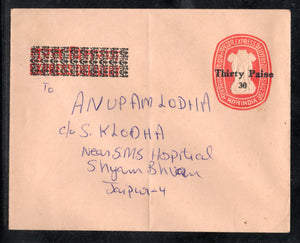 Thirty Paise
30
To
ANUPAM LODHA
c/o S. K LODHA
Near SMS Hospitical
Shyam Bhvan
Jaipur-4